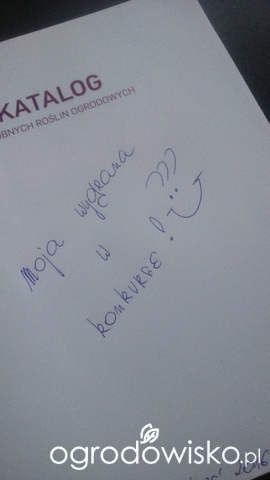 KATALOG
OBNYCH ROŚLIN OGRODOWYCH
Moja wygrana
w
konkursie!
ogrodowisko.pl